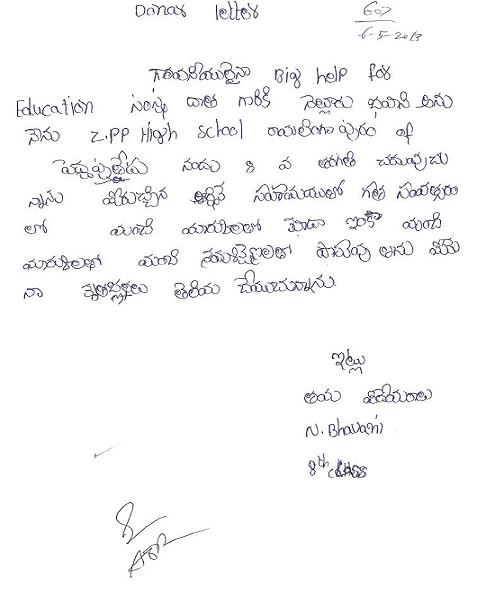 Donar letter
607
6-5-2013
గౌరవనీయులైన Big help for
Education సంస్థ దాత గారికి నెల్లూరు భవాని అను
నేను Z.PP High School రాయలింగాపురం of
నందు 8 వ తరగతి చదువుచు
న్నాను మీరుచ్చిన ఆర్థిక సహాయముతో గత సంవత్సరం
లో మంచి మార్కులతో ఇంకా మంచి
మార్కులతో మంచి
నా కృతజ్ఞతలు తెలియ చేయుచున్నాను
ఇట్లు
తమ విదేయురాలు
N. Bhavani
8th class